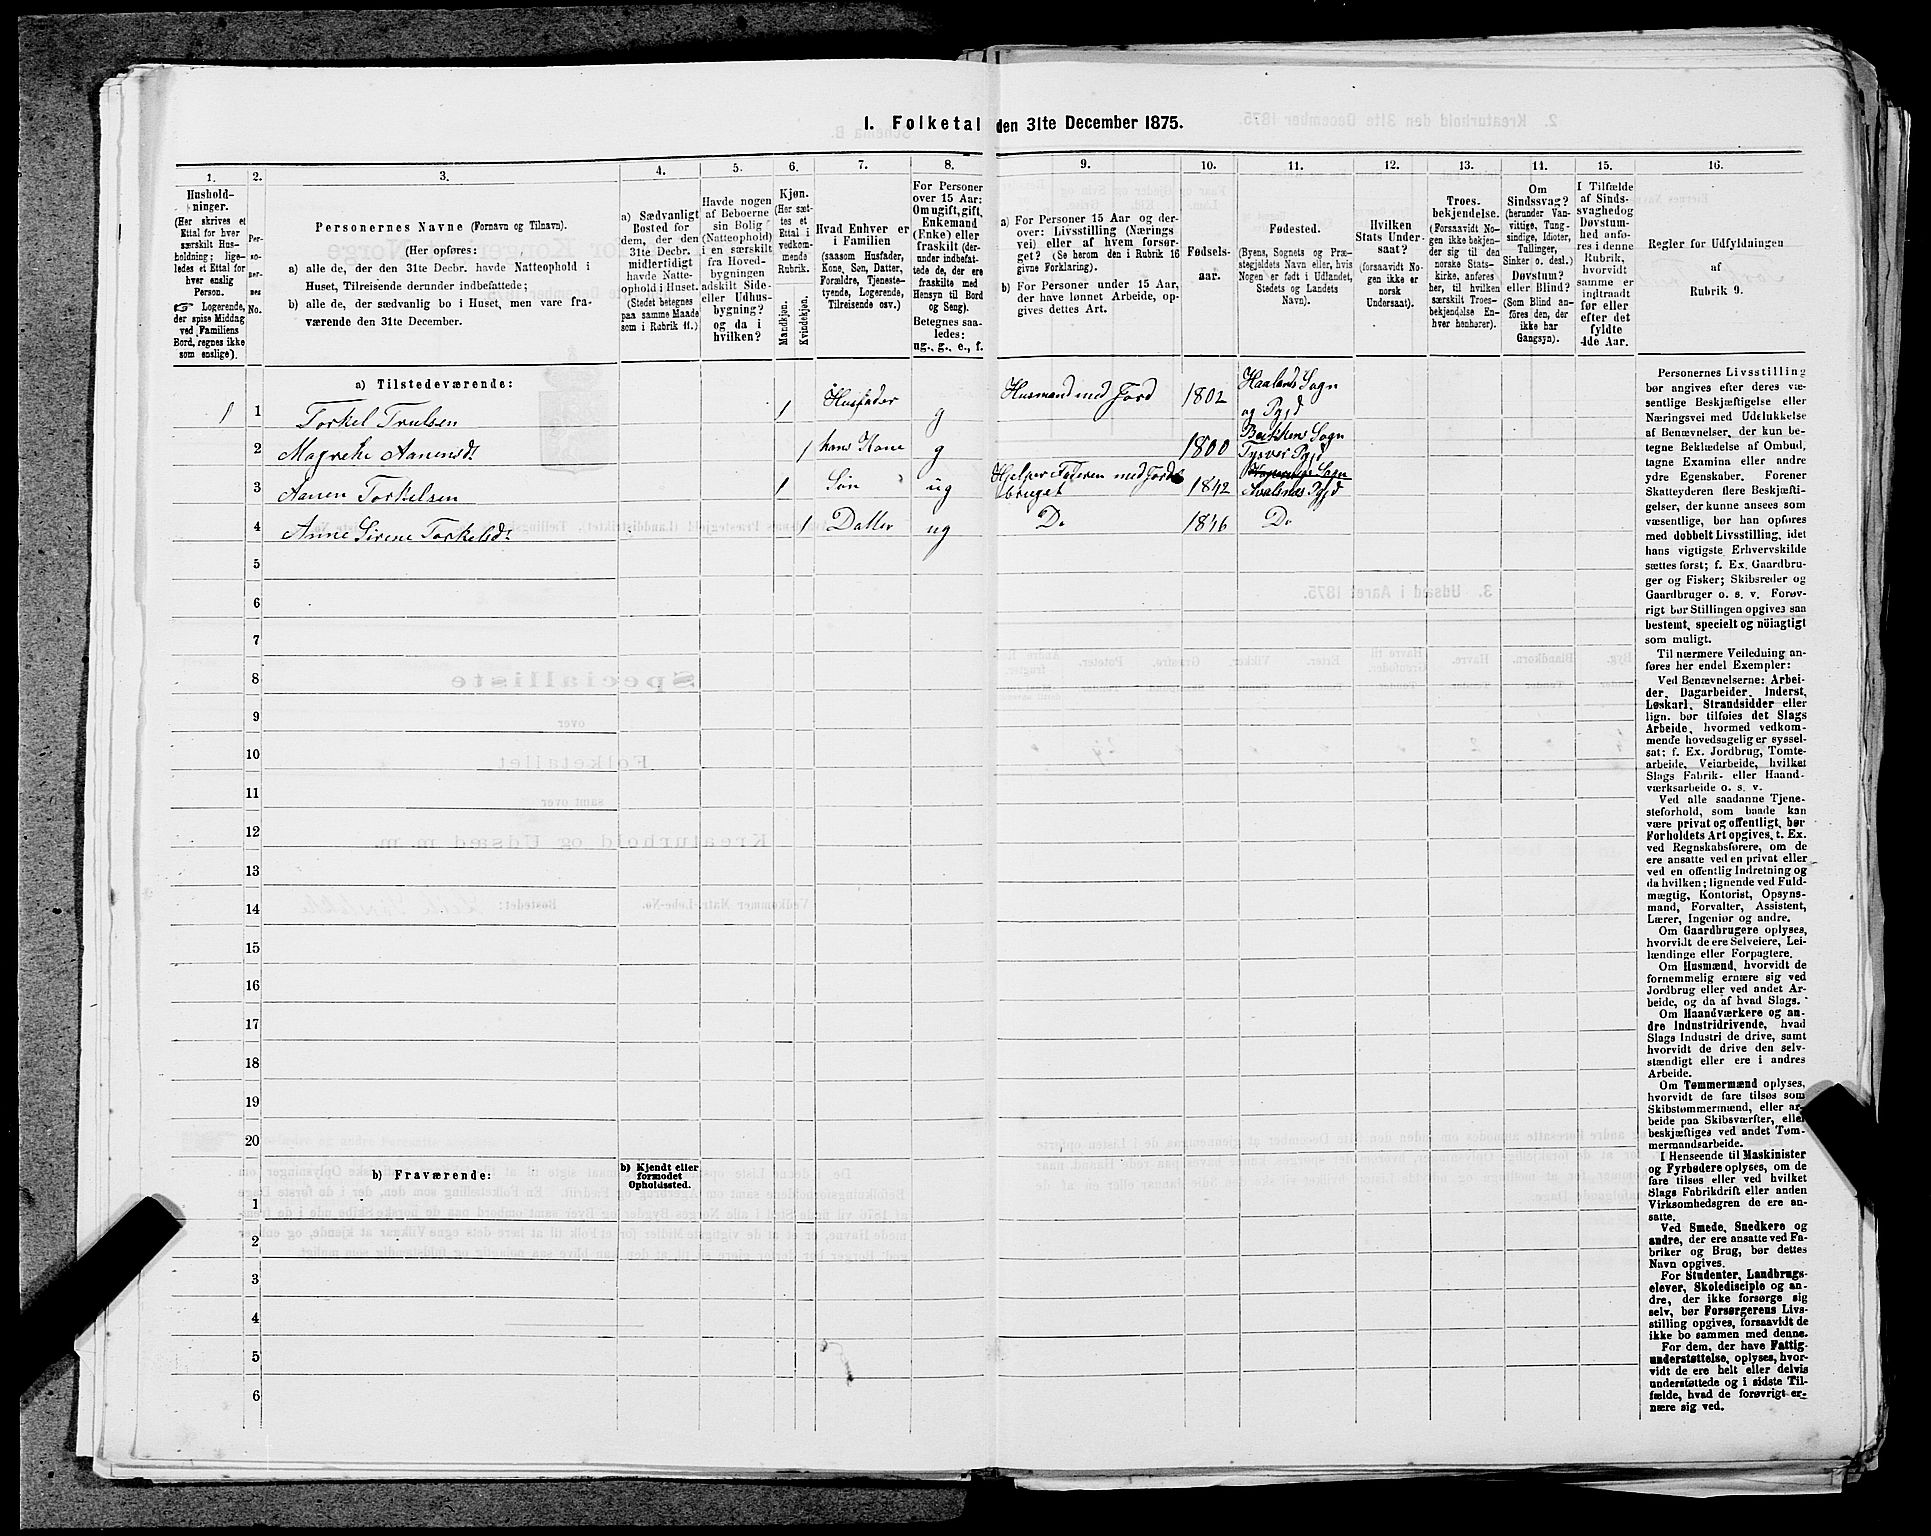 1. Folketal den 31te December 1875.
1.
Hushold-
ninger.
(Her skrives et
Ettal for hver
særskilt Hus-
holdning; lige-
ledes et Ettal for
hver enslig
Person.
☞ Logerende,
der spise Middag
ved Familiens
Bord, regnes ikke
som enslige).
2.
Per-
so-
ner-
nes
No.
3.
Personernes Navne (Fornavn og Tilnavn).
(Her opføres:
a) alle de, der den 31te Decbr. havde Natteophold i
Huset, Tilreisende derunder indbefattede;
b) alle de, der sædvanlig bo i Huset, men vare fra-
værende den 31te December.
4.
a) Sædvanligt
Bosted for
dem, der den
31te Decbr.
midlertidigt
havde Natte-
ophold i Huset.
(Stedet betegnes
paa samme Maade
som i Rubrik 11.)
5.
Havde nogen
af Beboerne
sin Bolig
(Natteophold)
i en særskilt
fra Hoved-
bygningen
adskilt Side-
eller Udhus-
bygning?
og da i
hvilken?
6.
Kjøn.
(Her sæt-
tes et
Ettal i
vedkom-
mende
Rubrik.
Mandkjøn.
Kvindekjøn.
7.
Hvad Enhver er
i Familien
(saasom Husfader,
Kone, Søn, Datter,
Forældre, Tjeneste-
tyende, Logerende,
Tilreisende osv.)
8.
For Personer
over 15 Aar:
Om ugift, gift,
Enkemand
(Enke) eller
fraskilt (der-
under indbefat-
tede de, der ere
fraskilte med
Hensyn til Bord
og Seng).
Betegnes saa-
ledes:
ug., g., e., f.
9.
a) For Personer 15 Aar og der-
over: Livsstilling (Nærings
vei) eller af hvem forsør-
get? (Se herom den i Rubrik 16
givne Forklaring).
b) For Personer under 15 Aar,
der have lønnet Arbeide, op-
gives dettes Art.
10.
Fødsels-
aar.
11.
Fødested.
(Byens, Sognets og Præ-
stegjeldets Navn eller, hvis
Nogen er født i Udlandet,
Stedets og Landets
Navn).
12.
Hvilken
Stats Under-
saat?
(forsaavidt No-
gen ikke er
norsk
Undersaat).
13.
Troes-
bekjendelse.
(Forsaavidt No-
gen ikke bekjen-
der sig til den
norske Stats-
kirke, anføres
her, til hvilken
særskilt Troes-
bekjendelse En-
hver henhører).
14.
Om
Sindssvag?
(herunder Van-
vittige, Tung-
sindige, Idioter,
Tullinger,
Sinker o. desl.)
Døvstum?
eller Blind?
(Som Blind an-
føres den, der
ikke har
Gangsyn).
15.
I Tilfælde
af Sinds-
svaghed og
Døvstum-
hed anfø-
res i denne
Rubrik,
hvorvidt
samme er
indtraadt
før eller
efter det
fyldte
4de Aar.
16.
Regler for Udfyldningen
af
Rubrik 9.
a) Tilstedeværende:
1 1 Torkel Trulsen 1 Husfader g Husmand med Jord 1802 Haalands Sogn
og Pgjd
2 Magrethe Aanensdt 1 hans Kone g 1800 Bokken Sogn
Tysvær Pgjd
3 Aanen Torkelsen 1 Søn ug Hjelper Faderen med Jord-
bruget 1842 Avalsnæs Pgjd
4 Anne Sirene Torkelsdt 1 Datter ug Do 1846 Do
5
6
7
8
9
10
11
12
13
14
15
16
17
18
19
20
b) Fraværende:
b) Kjendt eller
formodet
Opholdssted.
1
2
3
4
5
6
Personernes Livsstilling
bør angives efter deres væ-
sentlige Beskjæftigelse eller
Næringsvei med Udelukkelse
af Benævnelser, der kun be-
tegne Beklædelse af Ombud,
tagne Examina eller andre
ydre Egenskaber. Forener
Skatteyderen flere Beskjæfti-
gelser, der kunne ansees som
væsentlige, bør han opføres
med dobbelt Livsstilling, idet
hans vigtigste Erhvervskilde
sættes først; f. Ex. Gaardbru-
ger og Fisker; Skibsreder og
Gaardbruger o. s. v. Forøv-
rigt bør Stillingen opgives saa
bestemt, specielt og nöiagtigt
som muligt.
Til nærmere Veiledning an-
føres her endel Exempler:
Ved Benævnelserne: Arbei-
der, Dagarbeider, Inderst,
Løskarl, Strandsidder eller
lign. bør tilføies det Slags
Arbeide, hvormed vedkom-
mende hovedsagelig er syssel-
sat; f. Ex. Jordbrug, Tomte-
arbeide, Veiarbeide, hvilket
Slags Fabrik- eller Haand-
værksarbeide o. s. v.
Ved alle saadanne Tjene-
steforhold, som baade kan
være privat og offentligt, bør
Forholdets Art opgives, t. Ex.
ved Regnskabsførere, om de
ere ansatte ved en privat eller
ved en offentlig Indretning og
da hvilken; lignende ved Fuld-
mægtig, Kontorist, Opsyns-
mand, Forvalter, Assistent,
Lærer, Ingeniør og andre.
Om Gaardbrugere oplyses,
hvorvidt de ere Selveiere, Lei-
lændinge eller Forpagtere.
Om Husmænd, hvorvidt de
fornemmelig ernære sig ved
Jordbrug eller ved andet Ar-
beide, og da af hvad Slags.
Om Haandværkere og an-
dre Industridrivende, hvad
Slags Industri de drive, samt
hvorvidt de drive den selv-
stændigt eller ere i andres
Arbeide.
Om Tømmermænd oplyses,
hvorvidt de fare tilsøs som
Skibstømmermænd, eller ar-
beide paa Skibsværfter, eller
beskjæftiges ved andet Tøm-
mermandsarbeide.
I Henseende til Maskinister
og Fyrbødere oplyses, om de
fare tilsøs eller ved hvilket
Slags Fabrikdrift eller anden
Virksomhedsgren de ere an-
satte.
Ved Smede, Snedkere og
andre, der ere ansatte ved Fa-
briker og Brug, bør dettes
Navn opgives.
For Studenter, Landbrugs-
elever, Skoledisciple og an-
dre, der ikke forsørge sig
selv, bør Forsørgerens Livs-
stilling opgives, forsaavidt de
ikke bo sammen med denne.
For dem, der have Fattig-
understøttelse, oplyses, hvor-
vidt de ere helt eller delvis
understøttede og i sidste Til-
fælde, hvad de forøvrigt er-
nære sig ved.